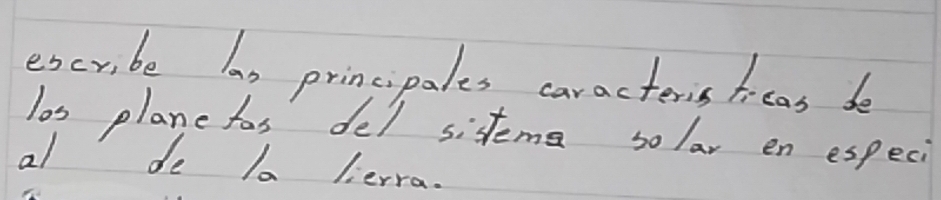 escribe las principales caracteristicas de
los planetas del sistema solar en especi
al de la tierra.